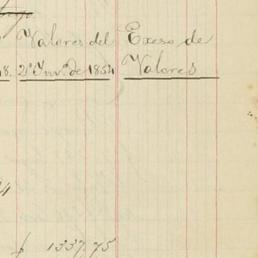 Valores del Exeso de
18. 2º Invº. de 1854 Valores
$ 1337.75